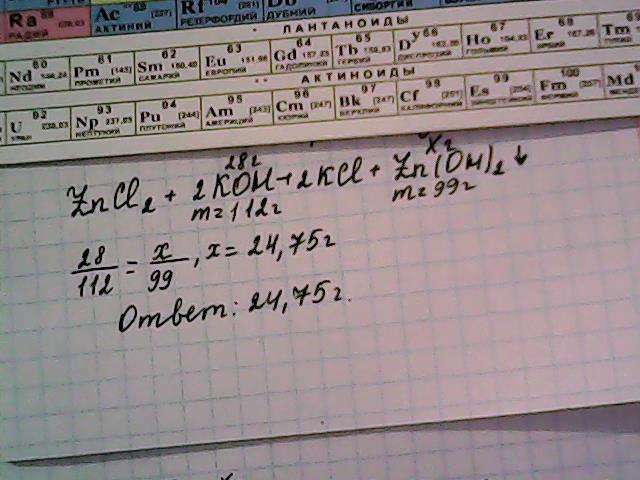 Ra 88 РАДИЙ
Ac АКТИНИЙ
Rf РЕЗЕРФОРДИЙ
ДУБНИЙ
СИБОРГИЙ
ЛАНТАНОИДЫ
60 61 62 63 64 65 66 67 68 69
Nd 144,24 Pm [145] Sm 150,40 Eu 151,96 Gd 157,25 Tb 158,93 Dy 162,50 Ho 164,93 Er 167,26 Tm
НЕОДИМ ПРОМЕТИЙ САМАРИЙ ЕВРОПИЙ ГАДОЛИНИЙ ТЕРБИЙ ДИСПРОЗИЙ ГОЛЬМИЙ ЭРБИЙ
АКТИНОИДЫ
92 93 94 95 96 97 98 99 100
U 238,03 Np 237,05 Pu [244] Am [243] Cm [247] Bk [247] Cf [251] Es [254] Fm [257] Md
УРАН НЕПТУНИЙ ПЛУТОНИЙ АМЕРИЦИЙ КЮРИЙ БЕРКЛИЙ КАЛИФОРНИЙ ЭЙНШТЕЙНИЙ ФЕРМИЙ
28г xг
ZnCl2 + 2KOH → 2KCl + Zn(OH)2 ↓
m=112г m=99г
28/112 = x/99, x = 24,75г
Ответ: 24,75г.